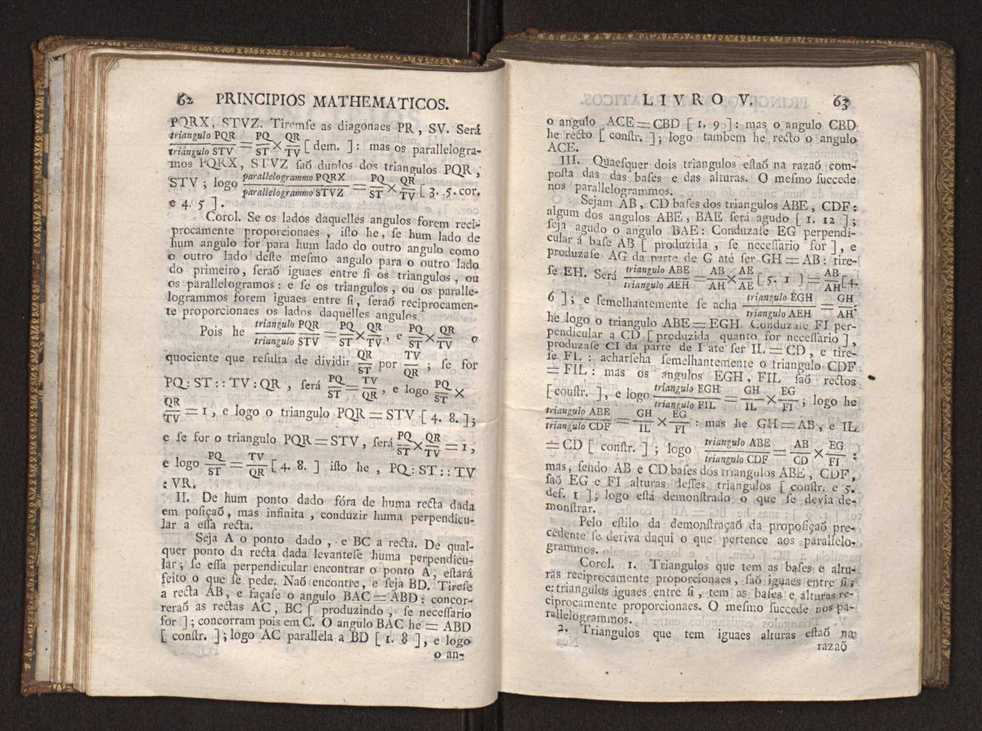 62 PRINCIPIOS MATHEMATICOS.
PQRX, STVZ. Tiremſe as diagonaes PR, SV. Será
triangulo PQR / triángulo STV = PQ / ST × QR / TV [ dem. ]: mas os parallelogra-
mos PQRX, STVZ ſaõ duplos dos triangulos PQR,
STV; logo parallelogrammo PQRX / parallelogrammo STVZ = PQ / ST × QR / TV [ 3. 5. cor.
e 4. 5 ].
Corol. Se os lados daquelles angulos forem reci-
procamente proporcionaes, iſto he, ſe hum lado de
hum angulo for para hum lado do outro angulo como
o outro lado deſte meſmo angulo para o outro lado
do primeiro, ſeraõ iguaes entre ſi os triangulos, ou
os parallelogramos: e ſe os triangulos, ou os paralle-
logrammos forem iguaes entre ſi, ſeraõ reciprocamen-
te proporcionaes os lados daquelles angulos.
Pois he triangulo PQR / triangulo STV = PQ / ST × QR / TV, e PQ / ST × QR / TV o
quociente que reſulta de dividir QR / ST por TV / QR; ſe for
PQ:ST::TV:QR, ſerá PQ / ST = TV / QR, e logo PQ / ST ×
QR / TV = 1, e logo o triangulo PQR = STV [ 4. 8. ];
e ſe for o triangulo PQR = STV, ſerá PQ / ST × QR / TV = 1,
e logo PQ / ST = TV / QR [ 4. 8. ] iſto he, PQ:ST::TV
:VR.
II. De hum ponto dado fóra de huma recta dada
em poſiçaõ, mas infinita, conduzir huma perpendicu-
lar a eſſa recta.
Seja A o ponto dado, e BC a recta. De qual-
quer ponto da recta dada levanteſe huma perpendicu-
lar; ſe eſſa perpendicular encontrar o ponto A, eſtará
feito o que ſe pede. Naõ encontre, e ſeja BD. Tireſe
a recta AB, e façaſe o angulo BAC = ABD: concor-
reraõ as rectas AC, BC [ produzindo, ſe neceſſario
for ]; concorram pois em C. O angulo BAC he = ABD
[ conſtr. ]; logo AC parallela a BD [ 1. 8 ], e logo
o an-
LIVRO V. 63
o angulo ACE = CBD [ 1. 9 ]: mas o angulo CBD
he recto [ conſtr. ]; logo tambem he recto o angulo
ACE.
III. Quaeſquer dois triangulos eſtaõ na razaõ com-
poſta das das baſes e das alturas. O meſmo ſuccede
nos parallelogrammos.
Sejam AB, CD baſes dos triangulos ABE, CDF:
algum dos angulos ABE, BAE ſerá agudo [ 1. 12 ];
ſeja agudo o angulo BAE: Conduzaſe EG perpendi-
cular á baſe AB [ produzida, ſe neceſſario for ], e
produzaſe AG da parte de G até ſer GH = AB: tire-
ſe EH. Será triangulo ABE / triangulo AEH = AB / AH × AE / AE [ 5. 1 ] = AB / AH [4.
6 ]; e ſemelhantemente ſe acha triangulo EGH / triangulo AEH = GH / AH:
he logo o triangulo ABE = EGH. Conduzaſe FI per-
pendicular a CD [ produzida quanto for neceſſario ],
produzaſe CI da parte de I até ſer IL = CD, e tire-
ſe FL: acharſeha ſemelhantemente o triangulo CDF
= FIL: mas os angulos EGH, FIL ſaõ rectos
[ conſtr. ], e logo triangulo EGH / triangulo FIL = GH / IL × EG / FI; logo he
triangulo ABE / triangulo CDF = GH / IL × EG / FI: mas he GH = AB, e IL
= CD [ conſtr. ]; logo triangulo ABE / triangulo CDF = AB / CD × EG / FI:
mas, ſendo AB e CD baſes dos triangulos ABE, CDF,
ſaõ EG e FI alturas deſſes triangulos [ conſtr. e 5.
def. 1 ]; logo eſtá demonſtrado o que ſe devia de-
monſtrar.
Pelo eſtilo da demonſtraçaõ da propoſiçaõ pre-
cedente ſe deriva daqui o que pertence aos parallelo-
grammos.
Corol. 1. Triangulos que tem as baſes e altu-
ras reciprocamente proporcionaes, ſaõ iguaes entre ſi;
e triangulos iguaes entre ſi, tem as baſes e alturas re-
ciprocamente proporcionaes. O meſmo ſuccede nos pa-
rallelogrammos.
2. Triangulos que tem iguaes alturas eſtaõ na
razaõ